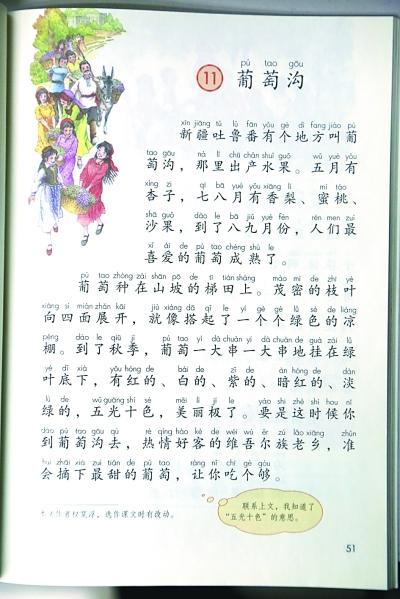 pú tao gōu
11 葡萄沟
xīn jiāng tǔ lǔ fān yǒu gè dì fang jiào pú
新疆吐鲁番有个地方叫葡
tao gōu nà lǐ chū chǎn shuǐ guǒ wǔ yuè yǒu
萄沟，那里出产水果。五月有
xìng zi qī bā yuè yǒu xiāng lí mì táo
杏子，七八月有香梨、蜜桃、
shā guǒ dào le bā jiǔ yuè fèn rén men zuì
沙果，到了八九月份，人们最
xǐ ài de pú tao chéng shú le
喜爱的葡萄成熟了。
pú tao zhòng zài shān pō de tī tián shang mào mì de zhī yè
葡萄种在山坡的梯田上。茂密的枝叶
xiàng sì miàn zhǎn kāi jiù xiàng dā qǐ le yí gè gè lǜ sè de liáng
向四面展开，就像搭起了一个个绿色的凉
péng dào le qiū jì pú tao yí dà chuàn yí dà chuàn de guà zài lǜ
棚。到了秋季，葡萄一大串一大串地挂在绿
yè dǐ xià yǒu hóng de bái de zǐ de àn hóng de dàn
叶底下，有红的、白的、紫的、暗红的、淡
lǜ de wǔ guāng shí sè měi lì jí le yào shi zhè shí hou nǐ
绿的，五光十色，美丽极了。要是这时候你
dào pú tao gōu qù rè qíng hào kè de wéi wú ěr zú lǎo xiāng zhǔn
到葡萄沟去，热情好客的维吾尔族老乡，准
huì zhāi xià zuì tián de pú tao ràng nǐ chī gè gòu
会摘下最甜的葡萄，让你吃个够。
作者权宽浮，选作课文时有改动。
联系上文，我知道了
“五光十色”的意思。
51